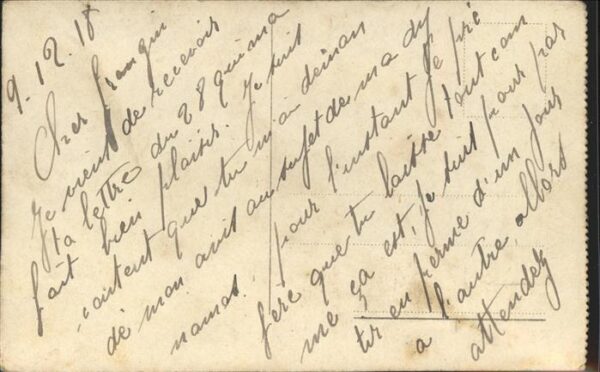 9.12.18
Cher franquin
Je vient de recevoir
ta lettre du 28 qui ma
fait bien plaisir. Je suit
content que tu m'ai deman
dé mon avis au sujet de ma dy
namos. pour l'instant je pré
fére que tu laisse tout com
me ça est, je suit pour par
tir en perme d'un jour
a l'autre, allors
attendez